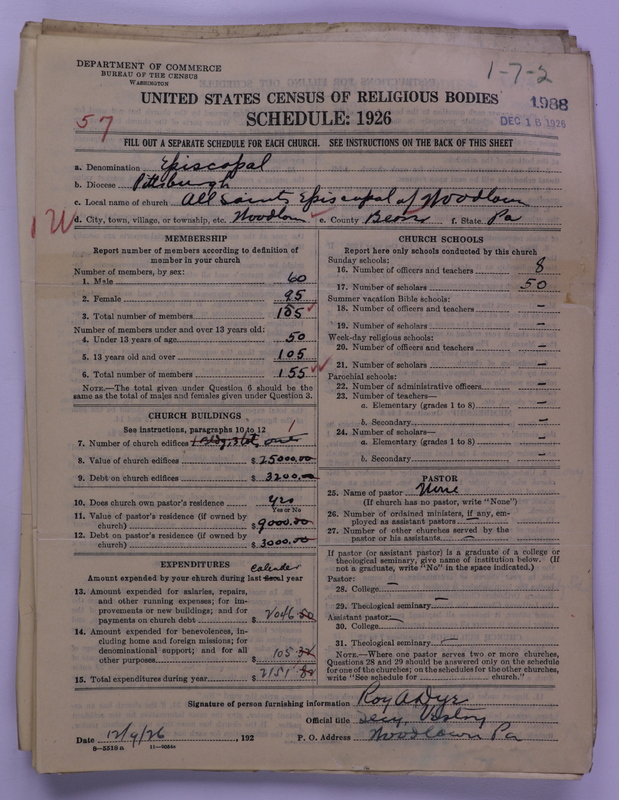 DEPARTMENT OF COMMERCE
BUREAU OF THE CENSUS
WASHINGTON
1-7-2
UNITED STATES CENSUS OF RELIGIOUS BODIES
1988
SCHEDULE: 1926
DEC 18 1926
57
FILL OUT A SEPARATE SCHEDULE FOR EACH CHURCH. SEE INSTRUCTIONS ON THE BACK OF THIS SHEET
a. Denomination Episcopal
b. Diocese Pittsburgh
c. Local name of church All Saints Episcopal of Woodlawn
d. City, town, village, or township, etc. Woodlawn e. County Beaver f. State Pa
1W
MEMBERSHIP
Report number of members according to definition of
member in your church
Number of members, by sex:
1. Male 60
2. Female 95
3. Total number of members 155
Number of members under and over 13 years old:
4. Under 13 years of age 50
5. 13 years old and over 105
6. Total number of members 155
NOTE.—The total given under Question 6 should be the
same as the total of males and females given under Question 3.
CHURCH BUILDINGS
See instructions, paragraphs 10 to 12
7. Number of church edifices one 1
8. Value of church edifices $25000.00
9. Debt on church edifices $3200.00
10. Does church own pastor's residence yes
Yes or No
11. Value of pastor's residence (if owned by
church) $9000.00
12. Debt on pastor's residence (if owned by
church) $3000.00
EXPENDITURES
calender
Amount expended by your church during last fiscal year
13. Amount expended for salaries, repairs,
and other running expenses; for im-
provements or new buildings; and for
payments on church debt $2046.50
14. Amount expended for benevolences, in-
cluding home and foreign missions; for
denominational support; and for all
other purposes $105.32
15. Total expenditures during year $2151.82
CHURCH SCHOOLS
Report here only schools conducted by this church
Sunday schools:
16. Number of officers and teachers 8
17. Number of scholars 50
Summer vacation Bible schools:
18. Number of officers and teachers —
19. Number of scholars —
Week-day religious schools:
20. Number of officers and teachers —
21. Number of scholars —
Parochial schools:
22. Number of administrative officers —
23. Number of teachers—
a. Elementary (grades 1 to 8) —
b. Secondary —
24. Number of scholars—
a. Elementary (grades 1 to 8) —
b. Secondary —
PASTOR
25. Name of pastor None
(If church has no pastor, write "None")
26. Number of ordained ministers, if any, em-
ployed as assistant pastors —
27. Number of other churches served by the
pastor or his assistants —
If pastor (or assistant pastor) is a graduate of a college or
theological seminary, give name of institution below. (If
not a graduate, write "No" in the space indicated.)
Pastor:
28. College —
29. Theological seminary —
Assistant pastor: —
30. College
31. Theological seminary —
NOTE.—Where one pastor serves two or more churches,
Questions 28 and 29 should be answered only on the schedule
for one of the churches; on the schedules for the other churches,
write "See schedule for church."
Signature of person furnishing information Roy A Dyr
Official title Secy. Vestry
Date 12/9/26 , 192 P. O. Address Woodlawn Pa
8-5518a